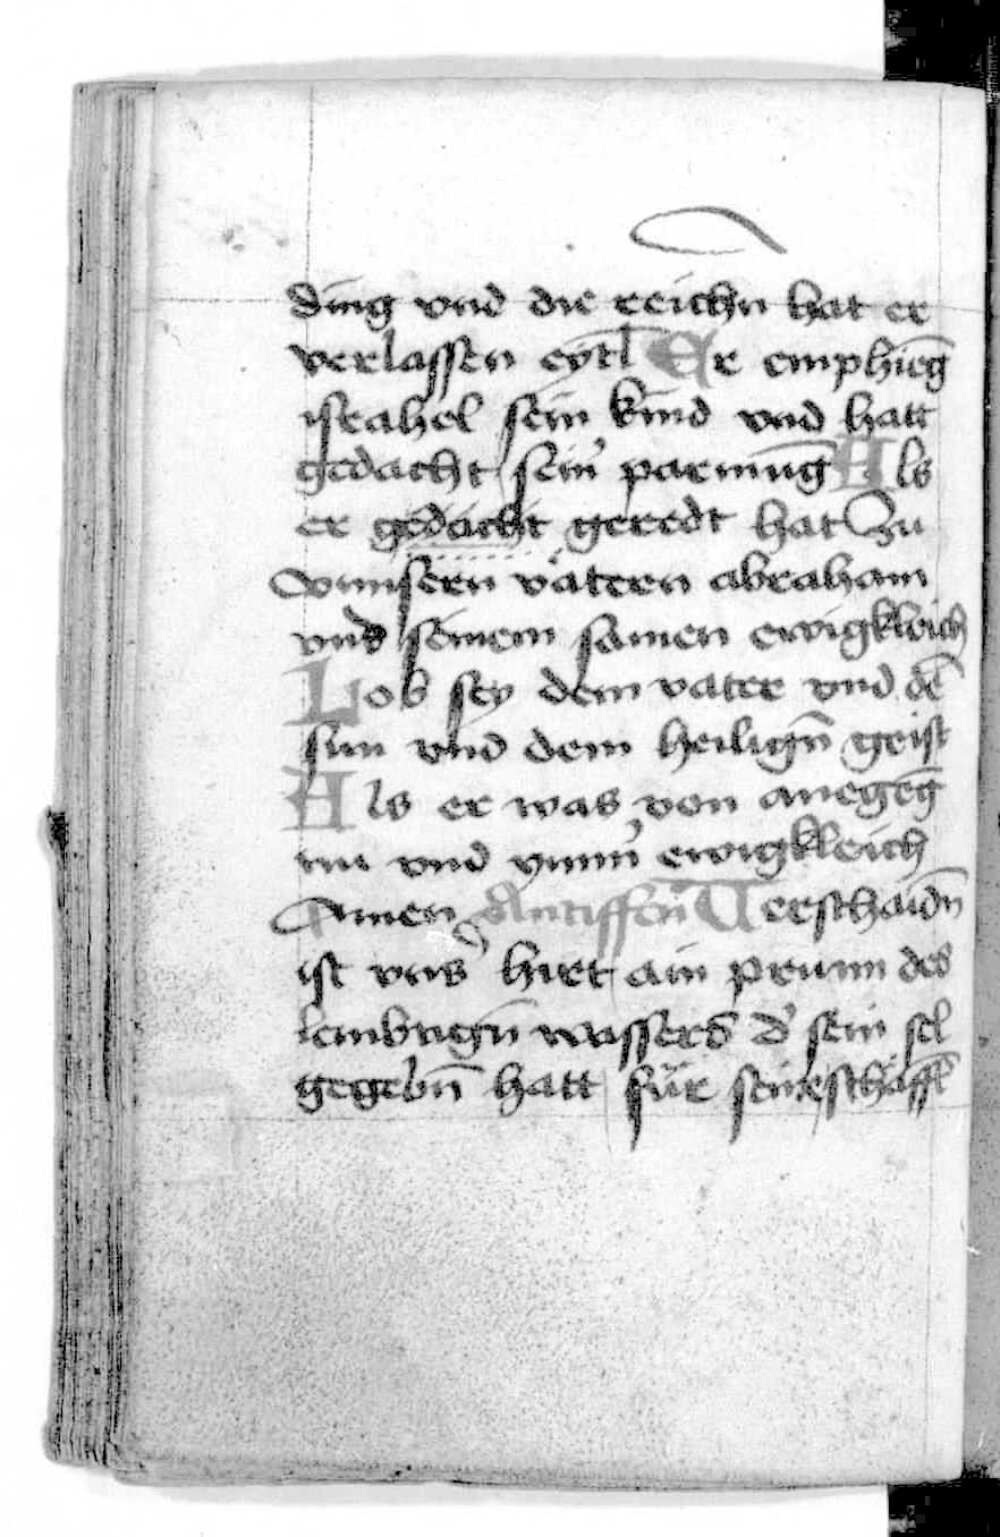 ding vnd die reichn hat er
verlassen eytl Er emphieḡ
israhel sein kind vnd hatt
gedacht sein' parmūg Als
er gedacht geredt hat Zu
vnnsern vätern abraham
vnd seinem samen ewigkleich
Lob sey dem vater vnd dē
sun vnd dem heilign̄ geist
Als er was von anegeḡ
nu vnd ymm' ewigkleich
Amen Antiffen Verschaidn̄
ist vns' hirt ain prunn des
lembtign̄ wassers d' sein sel
gegebn̄ hatt für seine schäffl